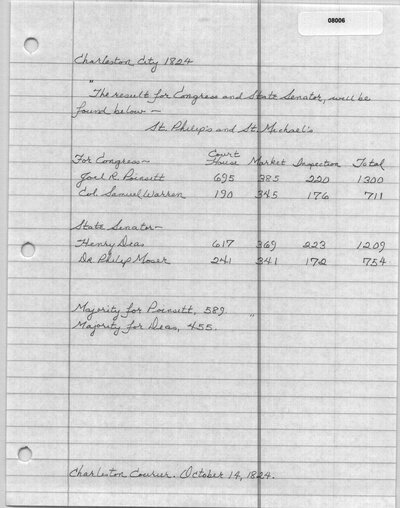 08006
Charleston City 1824
"
The result for Congress and State Senator, will be
found below —
St. Philip's and St. Michael's
For Congress — Court House Market Inspection Total
Joel R. Poinsett 695 385 220 1300
Col. Samuel Warren 190 345 176 711
State Senator —
Henry Deas 617 369 223 1209
Dr Philip Moser 241 341 172 754
Majority for Poinsett, 589.
Majority for Deas, 455. "
Charleston Courier. October 14, 1824.